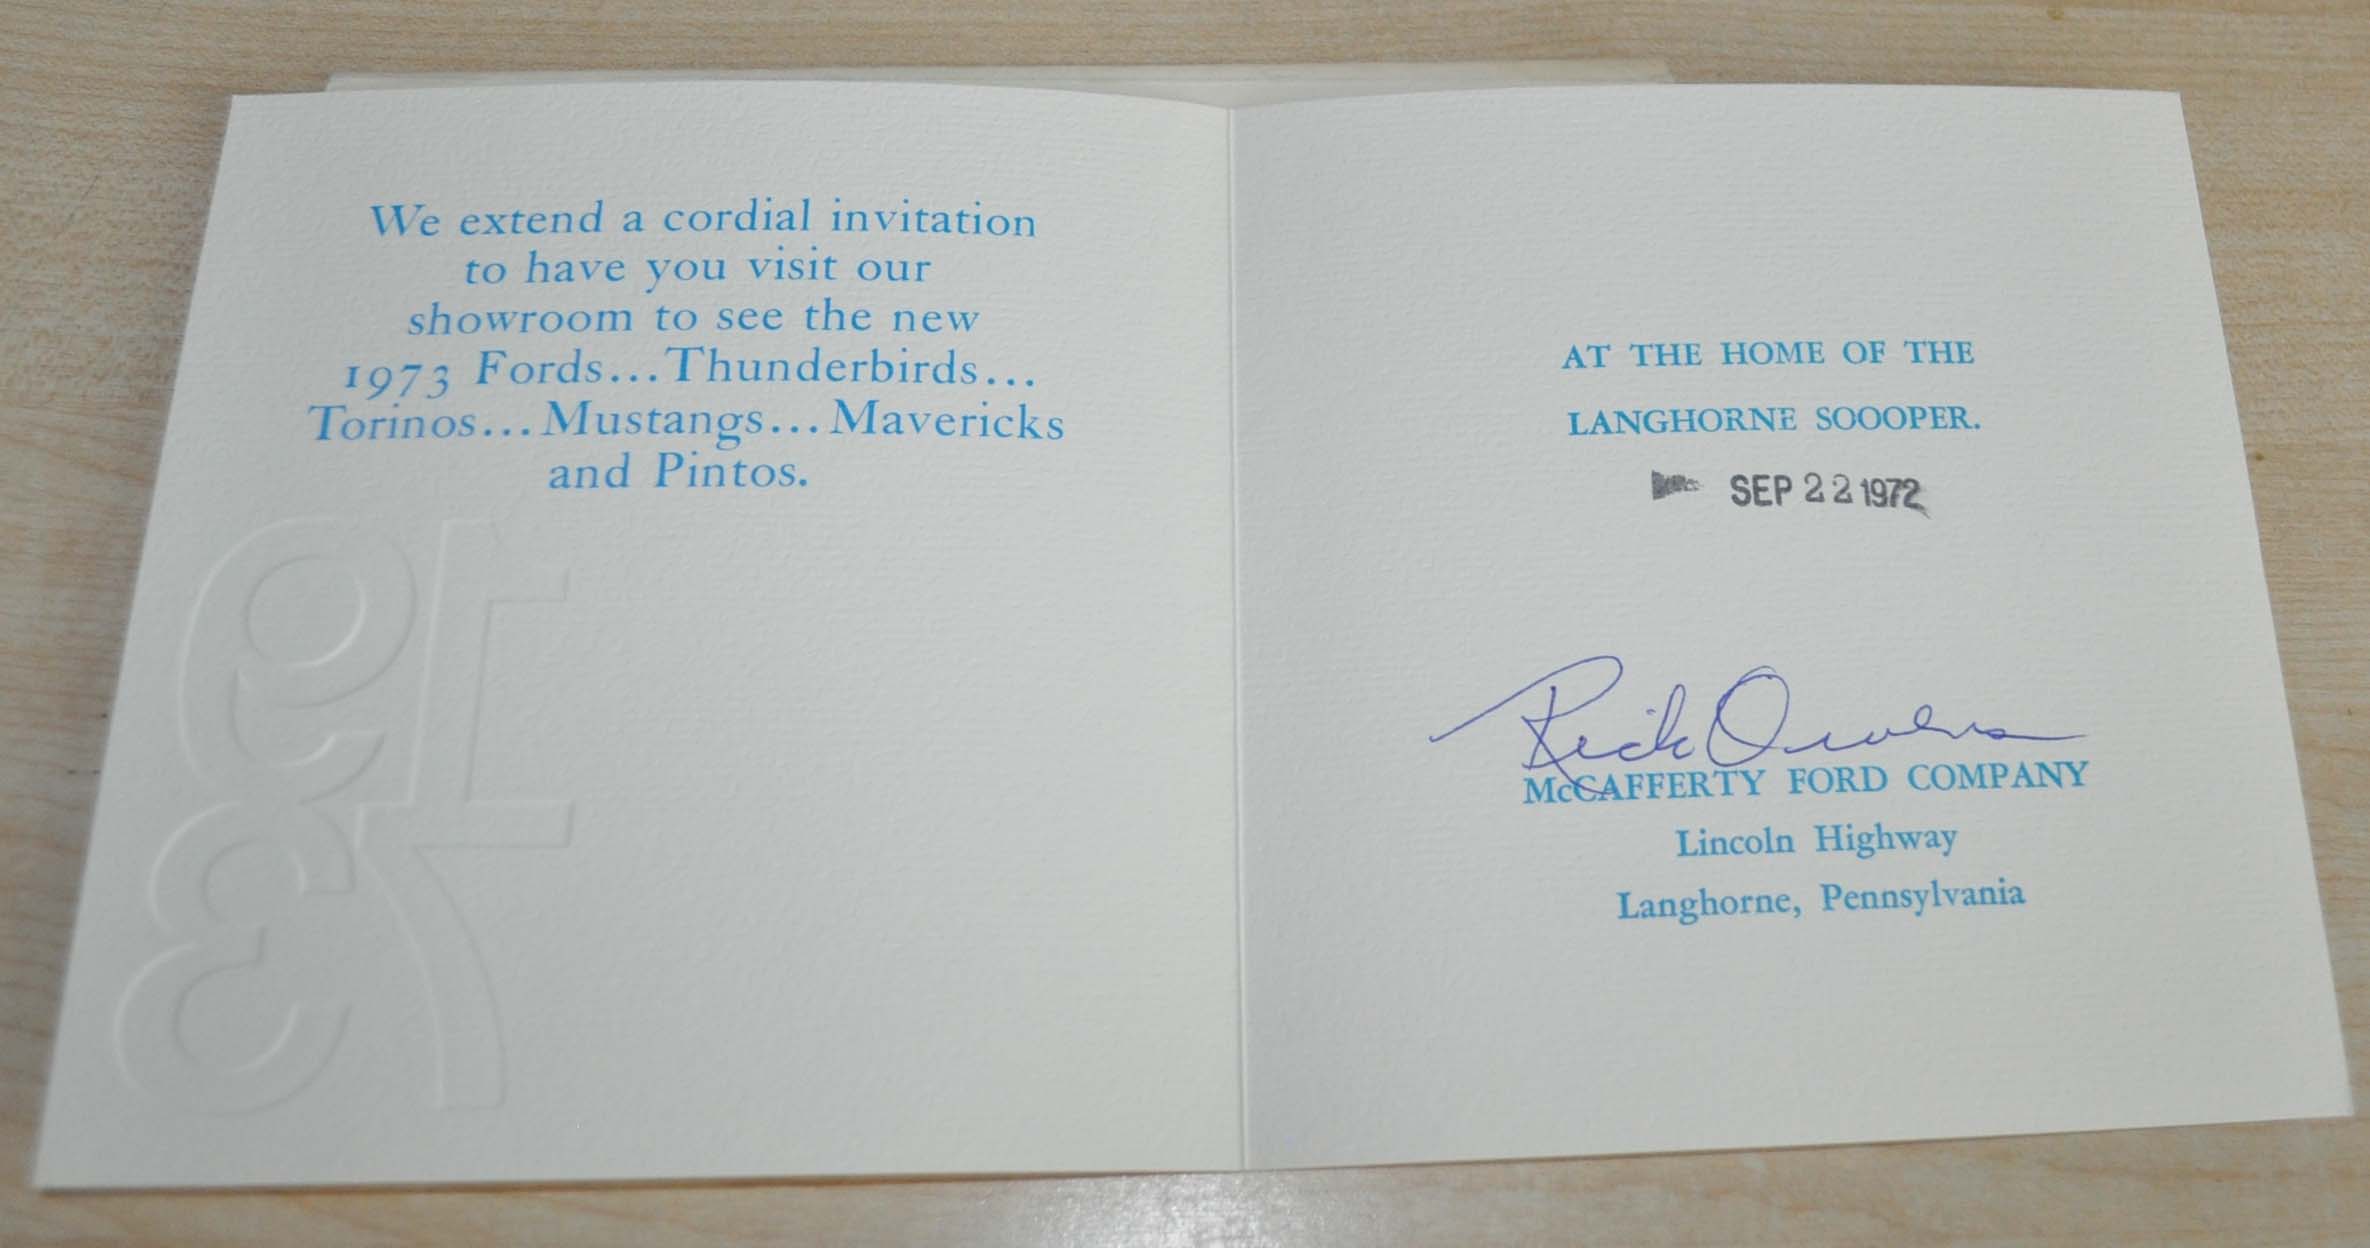 We extend a cordial invitation
to have you visit our
showroom to see the new
1973 Fords...Thunderbirds...
Torinos...Mustangs...Mavericks
and Pintos.
1973
AT THE HOME OF THE
LANGHORNE SOOOPER.
SEP 22 1972
Rick Owens
McCAFFERTY FORD COMPANY
Lincoln Highway
Langhorne, Pennsylvania